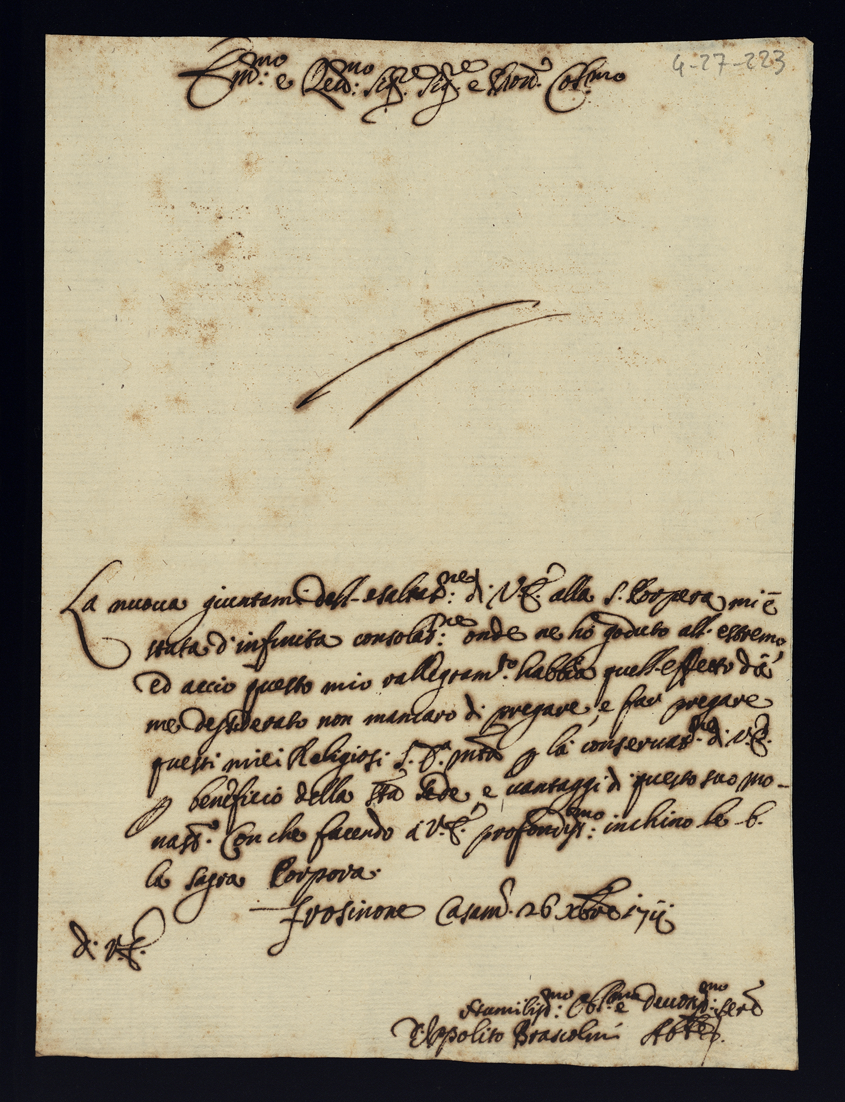 4-27-223
Em.mo e Rev.mo Sig.re Sig.re e Pron. Col.mo
La nuova giuntami dell'esaltat.ne di V.E. alla S. Porpora mi è
stata d'infinita consolat.ne onde ne hò goduto all'estremo
Ed acciò questo mio rallegram.to habbia quell'effetto da
me desiderato non mancarò di pregare, e far pregare
questi miei Religiosi S.D.M.tà p la conservat.ne di V.E.
p beneficio della S.ta Sede, e vantaggi di questo suo mo-
nast.o Con che facendo à V.E. profondiss.mo inchino le b.
la sagra Porpora.
Frosinone Casam. 26 Xbre 1711
di V.E.
Humiliss.mo Obl.mo e Devotiss.mo Ser.e
D. Ippolito Abbte